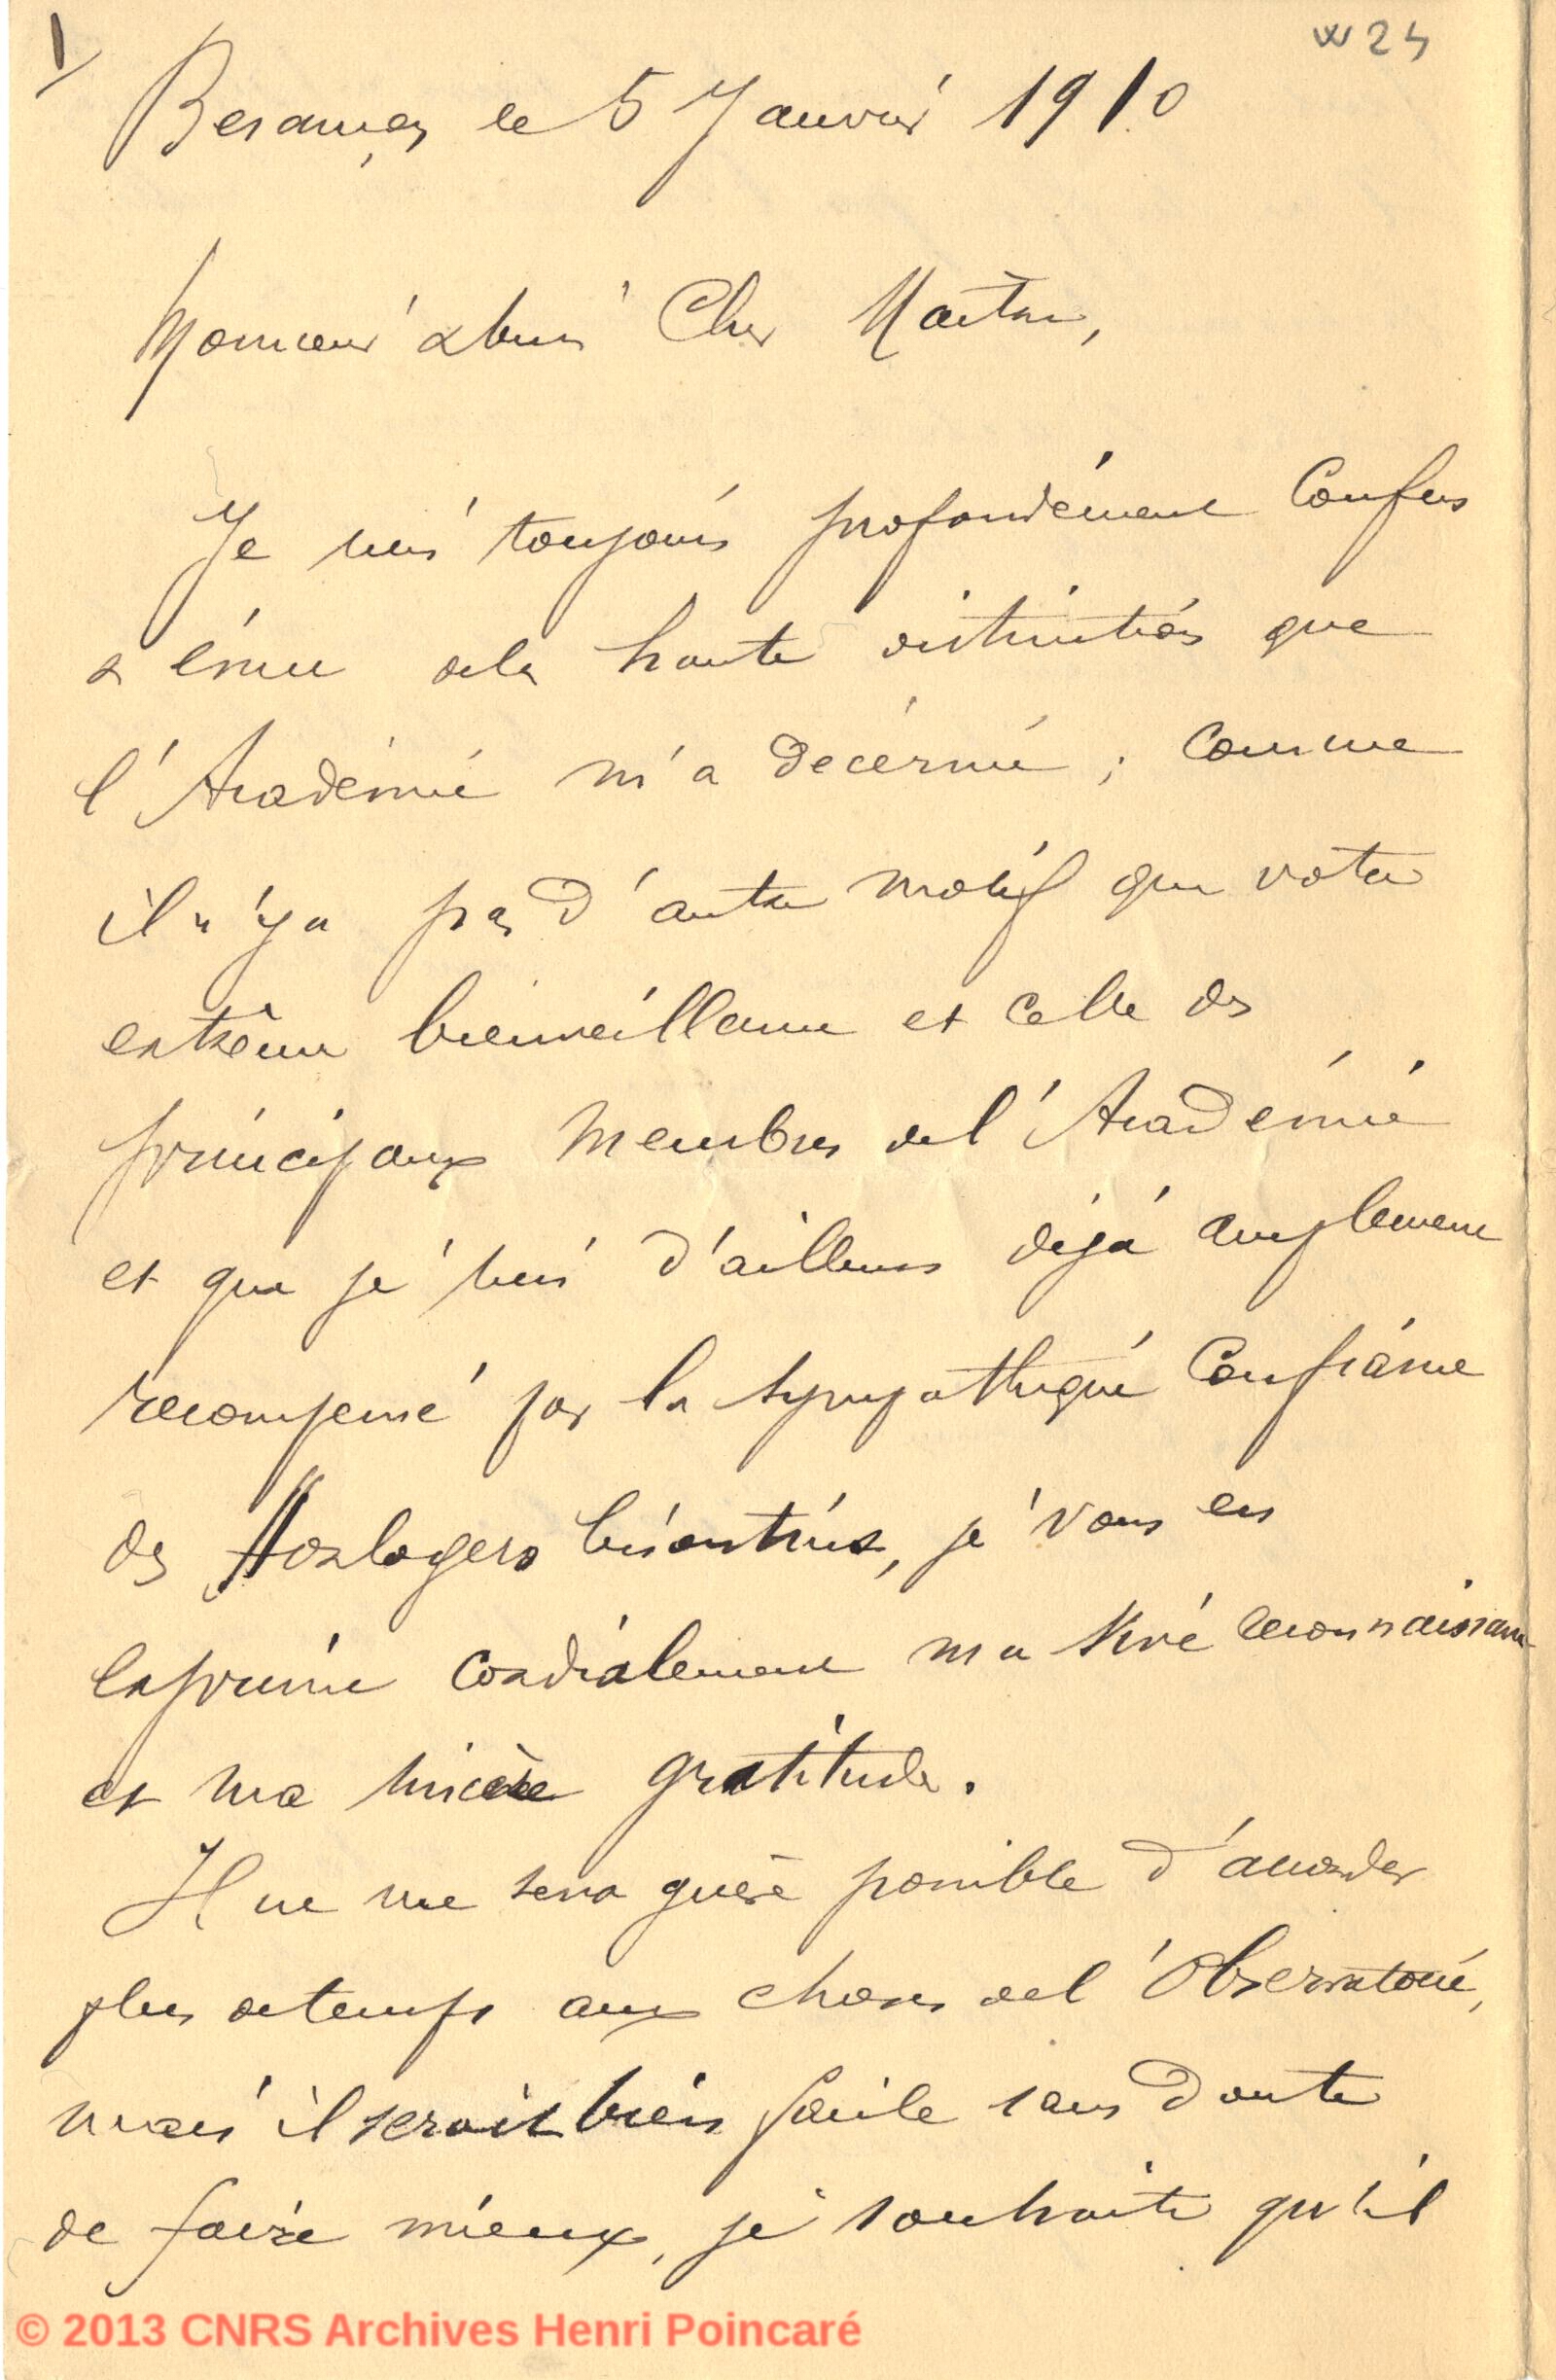 1/
W24
Besançon le 5 Janvier 1910
Monsieur & bien Cher Maître,
Je suis toujours profondément Confus
& ému de la haute distinction que
l'Académie m'a décerné ; comme
il n'y a pas d'autre motif que votre
extrême bienveillance et celle des
principaux Membres de l'Académie
et que je suis d'ailleurs déjà amplement
recompensé par la sympathique Confiance
des Horlogers bisontins, je vous en
exprime Cordialement ma vive reconnaissance
et ma sincère gratitude.
Il ne me sera guère possible d'accorder
plus de temps aux choses de l'Observatoire,
mais il serait bien facile sans doute
de faire mieux, je souhaite qu'il
© 2013 CNRS Archives Henri Poincaré